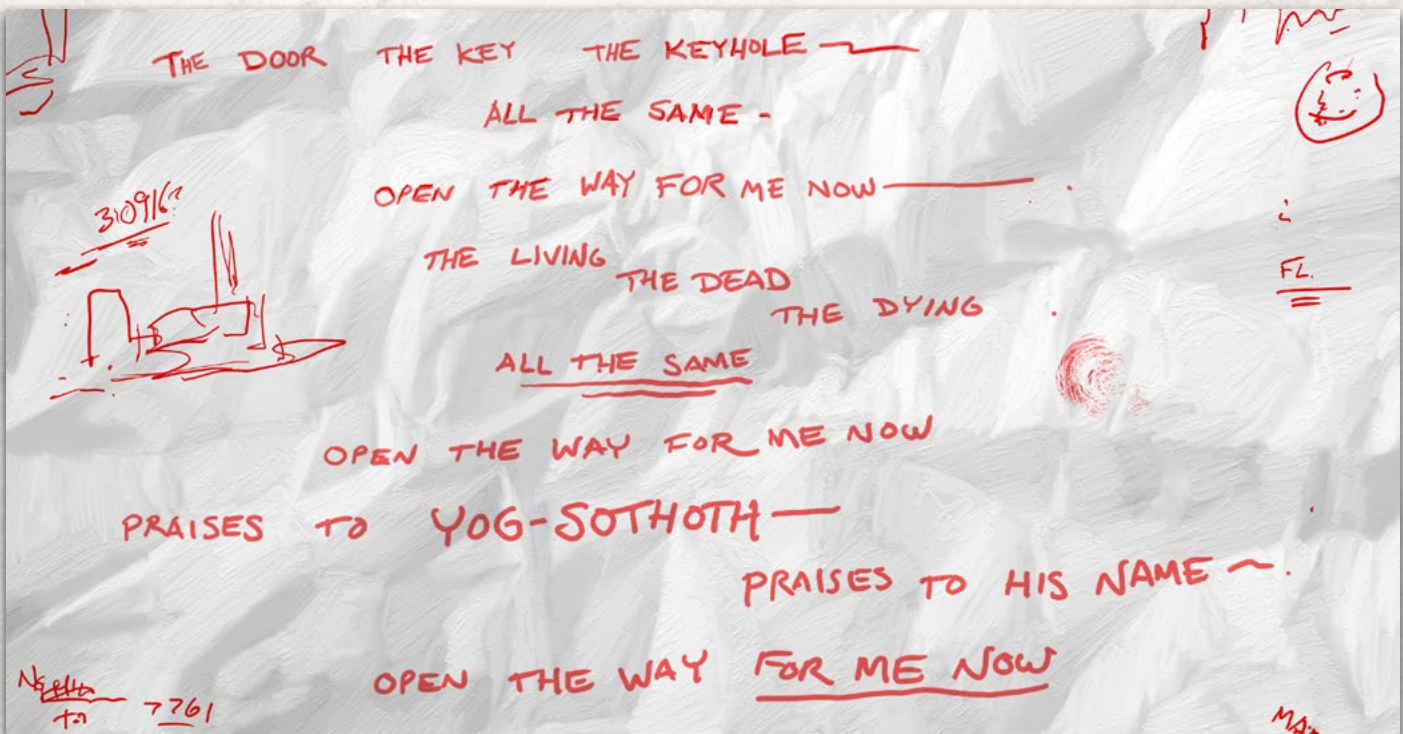 THE DOOR THE KEY THE KEYHOLE
ALL THE SAME -
OPEN THE WAY FOR ME NOW
THE LIVING
THE DEAD
THE DYING
FL.
ALL THE SAME
OPEN THE WAY FOR ME NOW
PRAISES TO YOG-SOTHOTH—
PRAISES TO HIS NAME ~.
OPEN THE WAY FOR ME NOW